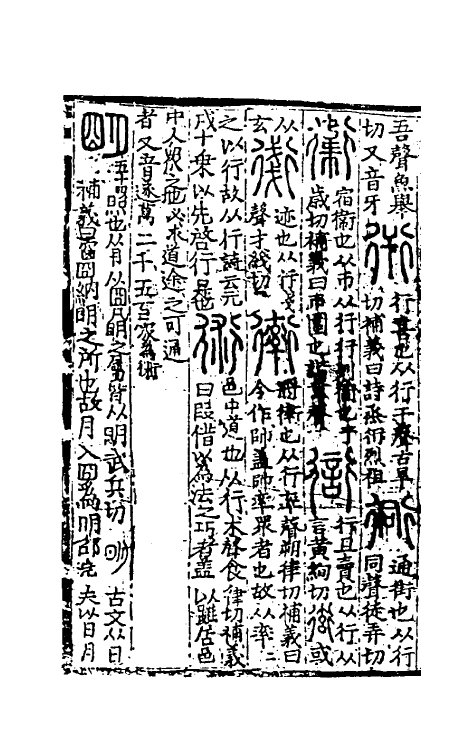 吾聲魚舉
切又音牙
衎
行喜也从行干聲古旱
切補義曰詩烝衎烈祖
衕
通街也从行
同聲徒弄切
衞
宿衞也从帀从行行列衞也于
歲切補義曰帀圍也
衒
行且賣也从行从
言黃絢切衒或
从
玄
迹也从行
聲才綫切
衛
將衛也从行率聲朔律切補義曰
今作帥蓋帥率眾者也故从率
之以行故从行詩云元
戎十乘以先啓行是也
術
邑中道也从行朮聲食律切補義
曰叚借以爲法之巧者蓋以雖居邑
中人之也必求道途之可通
者又音遂萬二千五百家爲術
朙
照也从月从囧凡朙之屬皆从朙武兵切明古文从日
補義曰囧納明之所也故月入囧爲明邵堯夫以日月